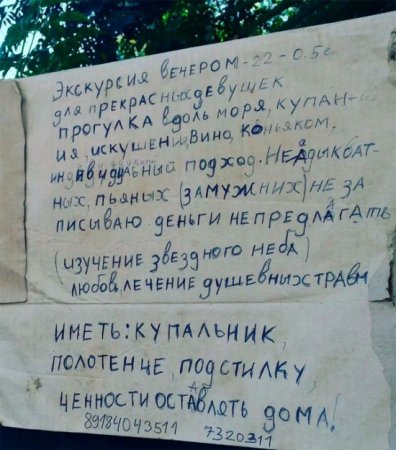 Экскурсия вечером-22-0.5г.
для прекрасных девушек
прогулка вдоль моря, купан-
ия, искушение, вино, коньяком,
индивидуальный подход. Неадыкват-
ных, пьяных (замужних) не за-
писываю деньги не предлагать
(изучение звездного неба)
любовь лечение душевных травм
Иметь: купальник,
полотенце, подстилку,
ценности оставлять дома!
89184043511 7320311